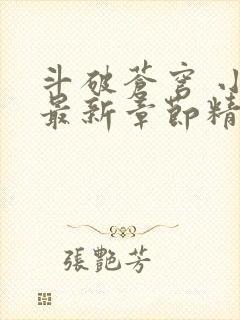 斗破蒼穹 小
最新章節精
張艷芳